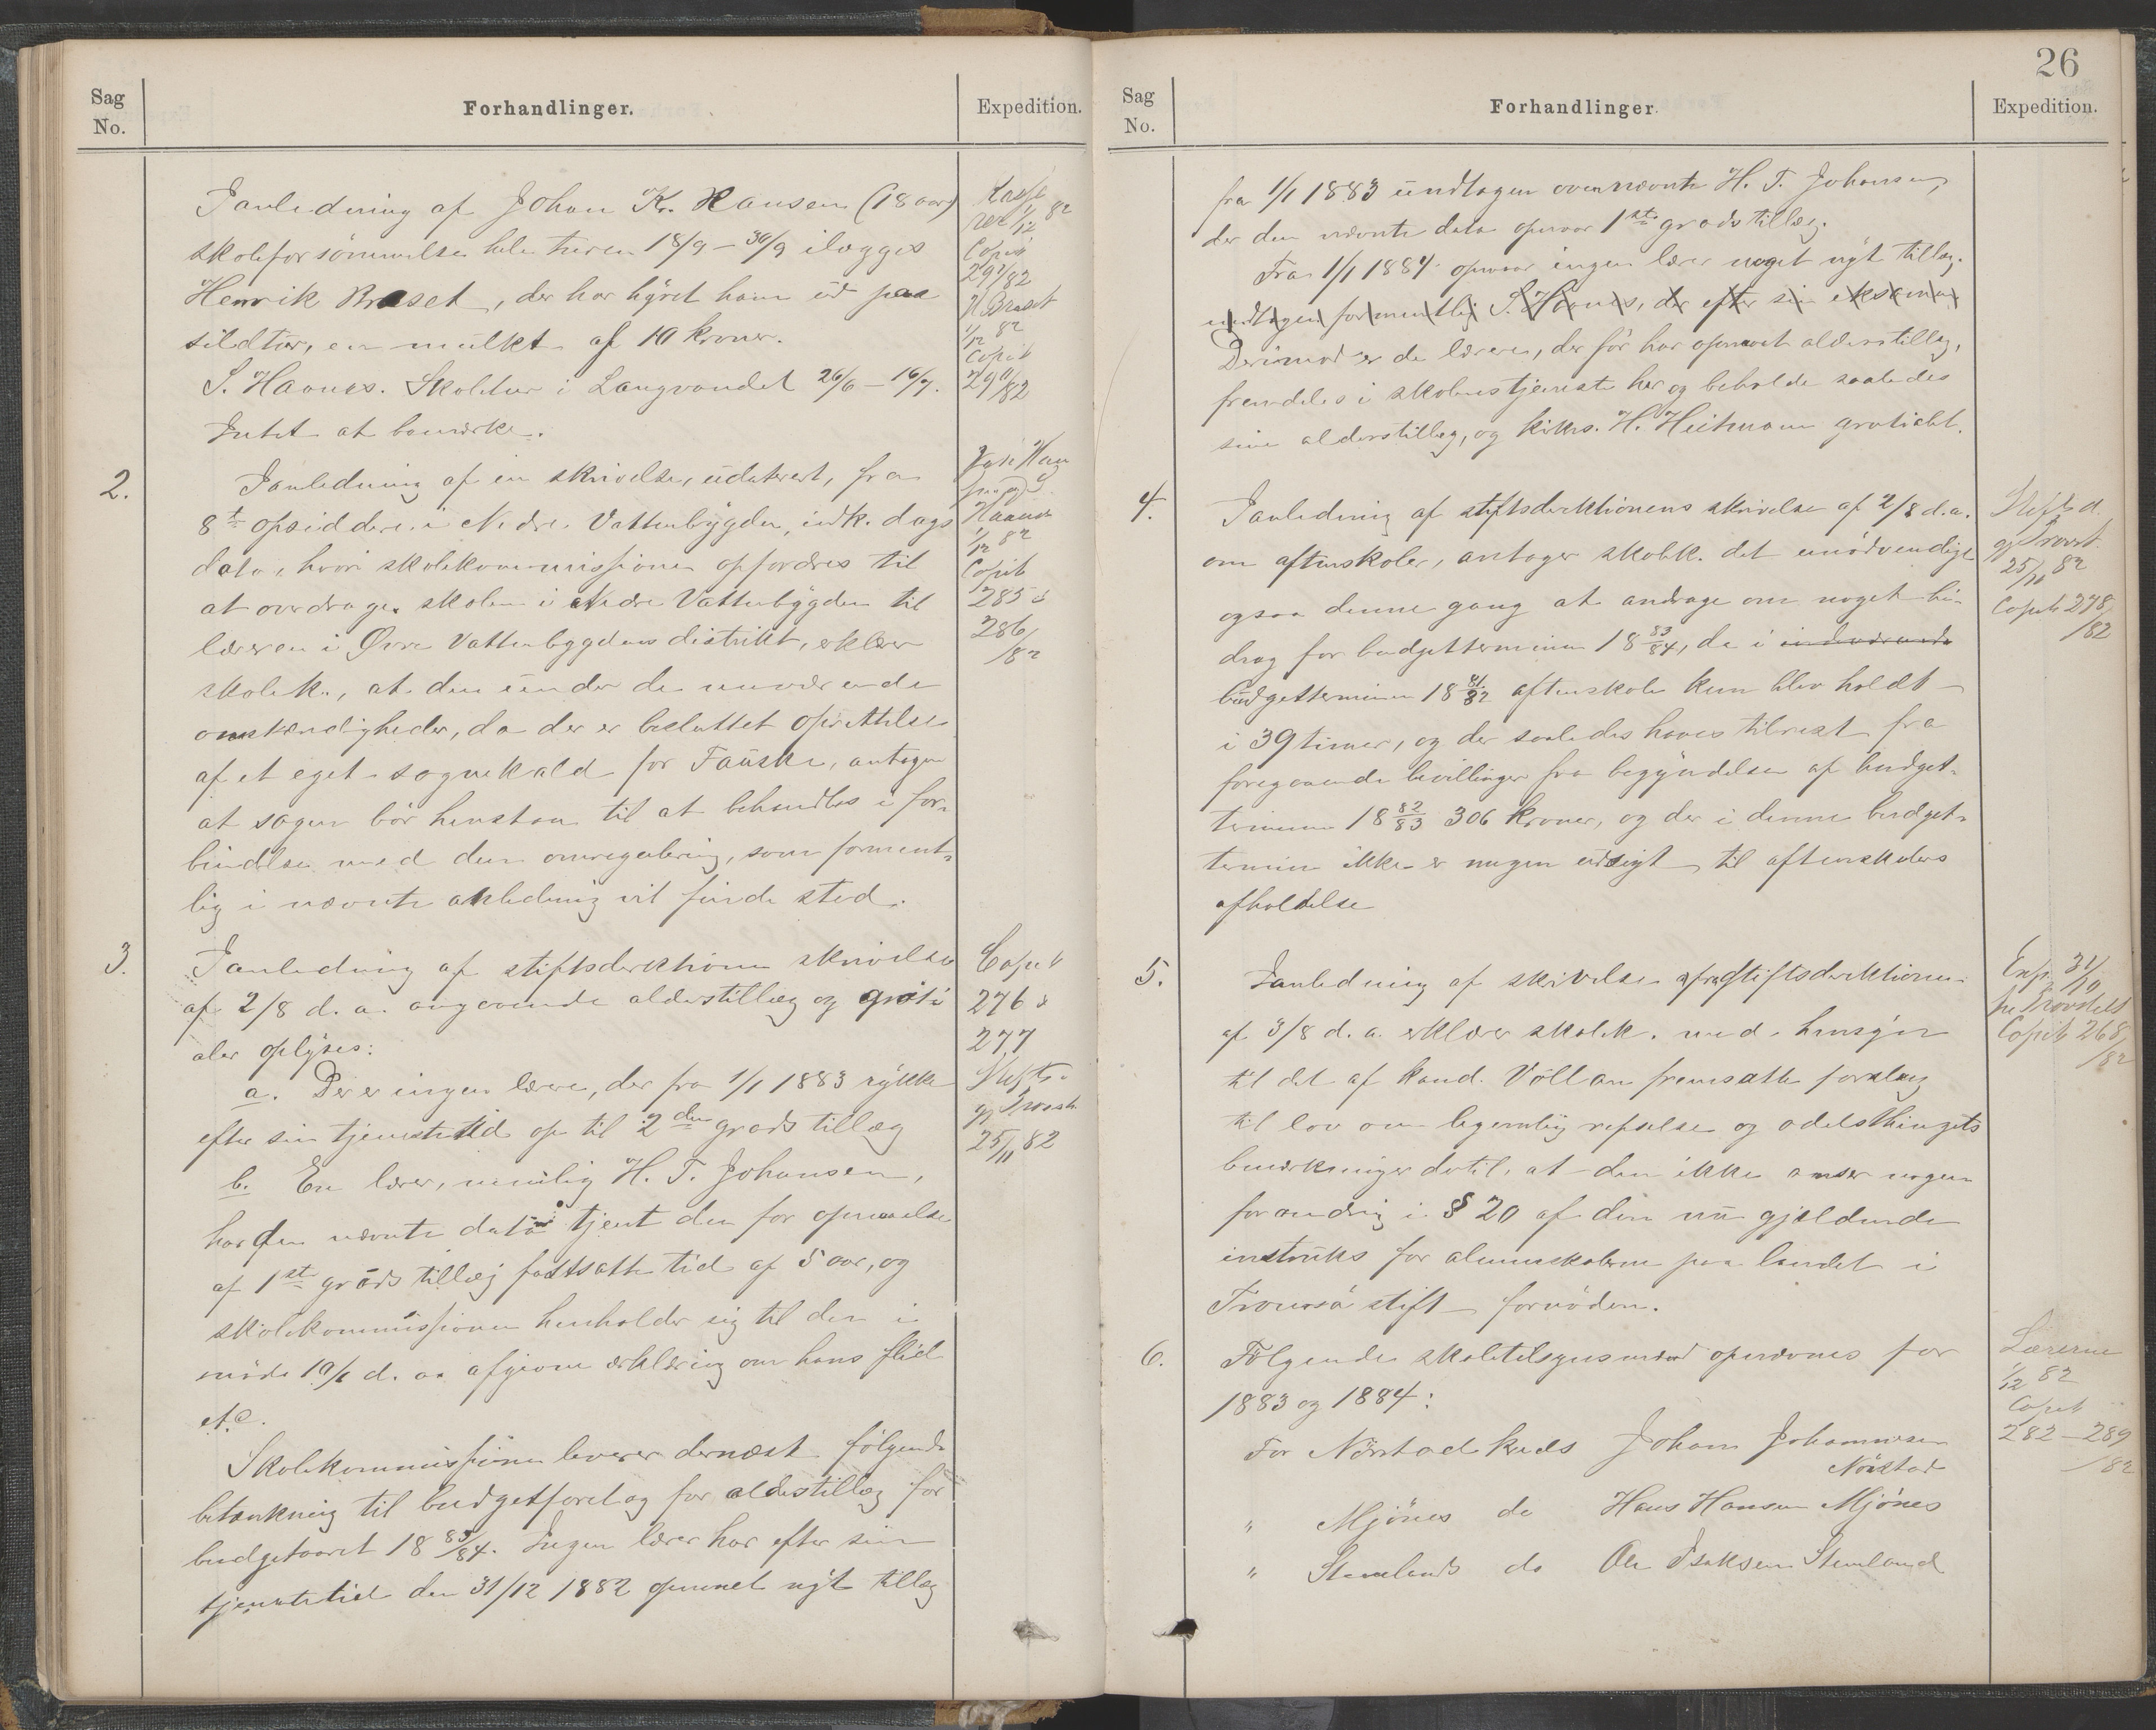 Sag
No.
Forhandlinger.
Expedition.
Ianledning af Johan Kr. Hansen (18 aar)
skoleforsömmelse hele turen 18/9 – 30/9 ilægges
Henrik Braset, der har hyret ham ud paa
sildtur, en mulkt af 10 kroner.
S. Haanes. Skoletur i Langvandet 26/6 – 16/7.
Intet at bemærke.
Kasse
rer 1/12 82
Copib
297/82
H Braset
1/12 82
Copib
290/82
2.
Ianledning af en skrivelse, udateret, fra
8te opsiddere i Nedre Vattenbygden, indk. dags
dato, hvori skolekommissionen opfordres til
at overdrage skolen i Nedre Vattenbygden til
læreren i Övre Vattenbygdens distrikt, erklærer
skolek., at den under de nuværende
omstændigheder, da der er besluttet oprettelse
af et eget sognekald for Fauske, antager
at sagen bör henstaa til at behandles i for-
bindelse med den omregulering, som forment-
lig i nævnte anledning vil finde sted.
Haanes
1/12 82
Copib
285 &
286
/82
3.
Ianledning af stiftsdirektionens skrivelse
af 2/8 d. a. angaaende alderstillæg og grati
aler oplyses:
a. Der er ingen lærer, der fra 1/1 1883 rykker
efter sin tjenestetid op til 2den grads tillæg
b. En lærer, nemlig H. T. Johansen,
har den nævnte dato tjent den for opnaaelse
af 1ste grads tillæg fastsatte tid af 5 aar, og
skolekommissionen henholder sig til den i
möde 19/6 d. a. afgivne erklæring om hans flid
etc.
Skolekommissionen leverer dernæst følgende
betænkning til budgetforslag for alderstillæg for
budgetaaret 18 83/84. Ingen lærer har efter sin
tjenestetid den 31/12 1882 opnaaet nyt tillæg
Copib
276 &
277
Stiftsd.
gj Provst.
25/11 82
26
Sag
No.
Forhandlinger.
Expedition.
fra 1/1 1883 undtagen ovennævnte H. T. Johansen,
der den nævnte dato opnaar 1ste grads tillæg.
Fra 1/1 1884 opnaar ingen lærer noget nyt tillæg.
undtagen formentlig S. Haanes, der efter sin eksamen
Derimod er de lærere, der för har opnaaet alderstillæg,
fremdeles i skolens tjeneste her og beholde saaledes
sine alderstillæg, og kirkes. H. Heitmann gratialet.
4.
Ianledning af stiftsdirektionens skrivelse af 2/8 d.a.
om aftenskoler, antager skolek. det unödvendigt
ogsaa denne gang at andrage om noget bi-
drag for budgetterminen 18 83/84, da i indeværende
budgetterminen 18 81/82 aftenskole kun blev holdt
i 39 timer, og der saaledes haves tilrest fra
foregaaende bevillinger fra begyndelsen af budget-
terminen 18 82/83 306 kroner, og der i denne budget-
termin ikke er nogen udsigt til aftenskolers
afholdelse
Stiftsd.
gj Provst.
25/11 82
Copib 278
/82
5.
Ianledning af skrivelse fra stiftsdirektionen
af 3/8 d. a. erklærer skolek. med hensyn
til det af kand. Völlan fremsatte forslag
til lov om legemlig refselse og odelsthingets
bemærkninger dertil, at den ikke anser nogen
forandring i § 20 af den nu gjældende
instruks for almueskolerne paa landet i
Tromsö stift fornöden.
Exp. 31/10
Copib 268
/82
6.
Fölgende skoletilsynsmænd opnævnes for
1883 og 1884:
For Nörstad kreds Johan Johannesen
Nörstad
" Mjönes do Hans Hansen Mjönes
" Stemlands do Ole Isaksen Stemland
Lærerne
1/12 82
Copib
282 – 289
/82